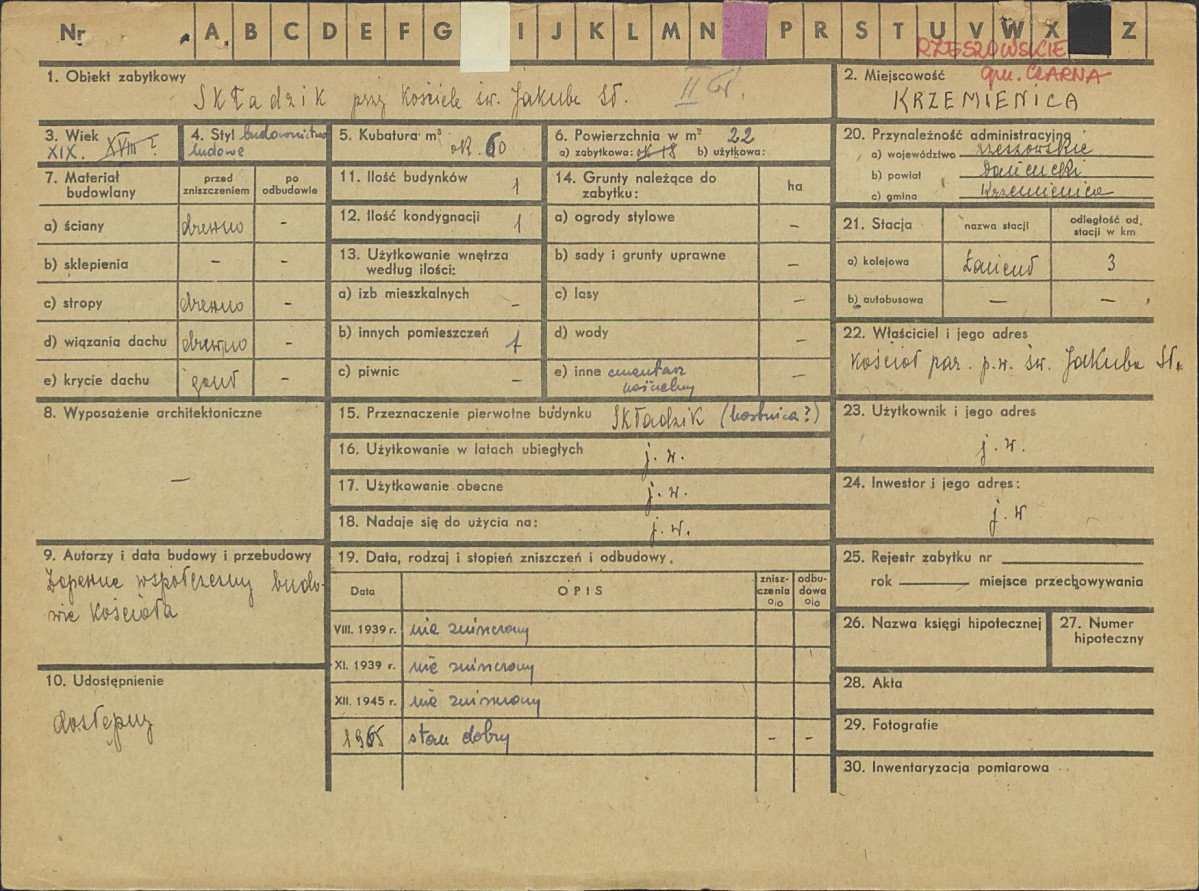 Nr A B C D E F G I J K L M N P R S T U V W X Z
RZESZOWSKIE
gm. CZARNA
1. Obiekt zabytkowy
SKŁadzik przy Kościele św. Jakuba St. II
2. Miejscowość
KRZEMIENICA
3. Wiek
XIX. XVIII ?
4. Styl budownictwo
ludowe
5. Kubatura m³
ok. 60
6. Powierzchnia w m² 22
a) zabytkowa: ok 18 b) użytkowa:
20. Przynależność administracyjna
a) województwo rzeszowskie
b) powiat łańcucki
c) gmina Krzemienica
7. Materiał budowlany
przed zniszczeniem
po odbudowie
a) ściany drewno -
b) sklepienia - -
c) stropy drewno -
d) wiązania dachu drewno -
e) krycie dachu gont -
11. Ilość budynków 1
12. Ilość kondygnacji 1
13. Użytkowanie wnętrza
według ilości:
a) izb mieszkalnych -
b) innych pomieszczeń 1
c) piwnic -
14. Grunty należące do
zabytku:
ha
a) ogrody stylowe -
b) sady i grunty uprawne -
c) lasy -
d) wody -
e) inne cmentarz
kościelny -
21. Stacja
nazwa stacji
odległość od.
stacji w km
a) kolejowa Łańcut 3
b) autobusowa — —
22. Właściciel i jego adres
Kościół par. p.w. św. Jakuba St.
8. Wyposażenie architektoniczne
—
15. Przeznaczenie pierwotne budynku SKŁadzik (kostnica?)
16. Użytkowanie w latach ubiegłych j. w.
17. Użytkowanie obecne j. w.
18. Nadaje się do użycia na: j. w.
23. Użytkownik i jego adres
j. w.
24. Inwestor i jego adres:
j. w
9. Autorzy i data budowy i przebudowy
Zapewne współczesny budo-
wie Kościoła
10. Udostępnienie
dostępny
19. Data, rodzaj i stopień zniszczeń i odbudowy.
Data
OPIS
znisz-
czenia
o/o
odbu-
dowa
o/o
VIII. 1939 r. nie zniszczony
XI. 1939 r. nie zniszczony
XII. 1945 r. nie zniszczony
1965 stan dobry - -
25. Rejestr zabytku nr
rok miejsce przechowywania
26. Nazwa księgi hipotecznej
27. Numer
hipoteczny
28. Akta
29. Fotografie
30. Inwentaryzacja pomiarowa